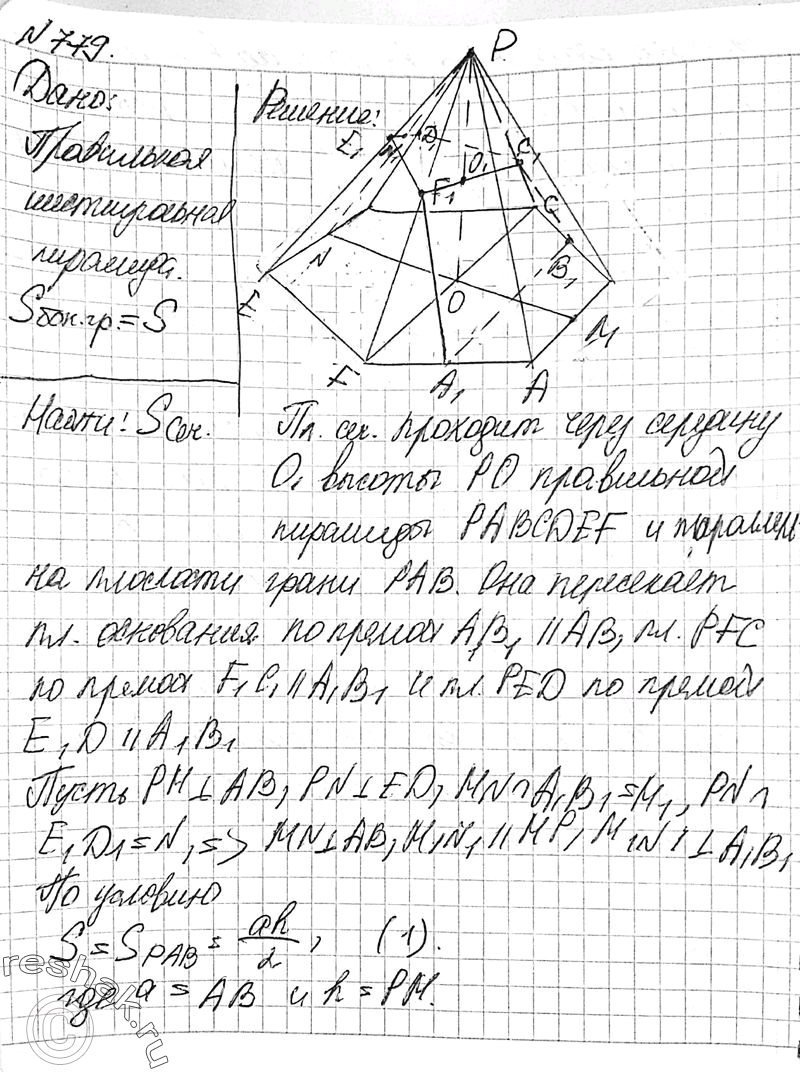 N 779.
Дано:
Правильная
шестиугольная
пирамида.
Sбок.гр. = S
Найти: Sсеч.
Решение:
P
E₁ N₁ D₁ O₁ C₁
F₁
C
N B₁
E O M
F A₁ A
Пл. сеч. проходит через середину
O₁ высоты PO правильной
пирамиды PABCDEF и параллель
на плоскости грани PAB. Она пересекает
пл. основания по прямой A₁B₁ || AB, пл. PFC
по прямой F₁C₁ || A₁B₁ и пл. PED по прямой
E₁D || A₁B₁
Пусть PM ⊥ AB, PN ⊥ ED, MN ∩ A₁B₁ = M₁, PN ∩
E₁D₁ = N₁ => MN ⊥ AB, M₁N₁ || MP, M₁N₁ ⊥ A₁B₁
По условию
S = SPAB = ah/2, (1).
где a = AB и h = PM.
reshak.ru
©